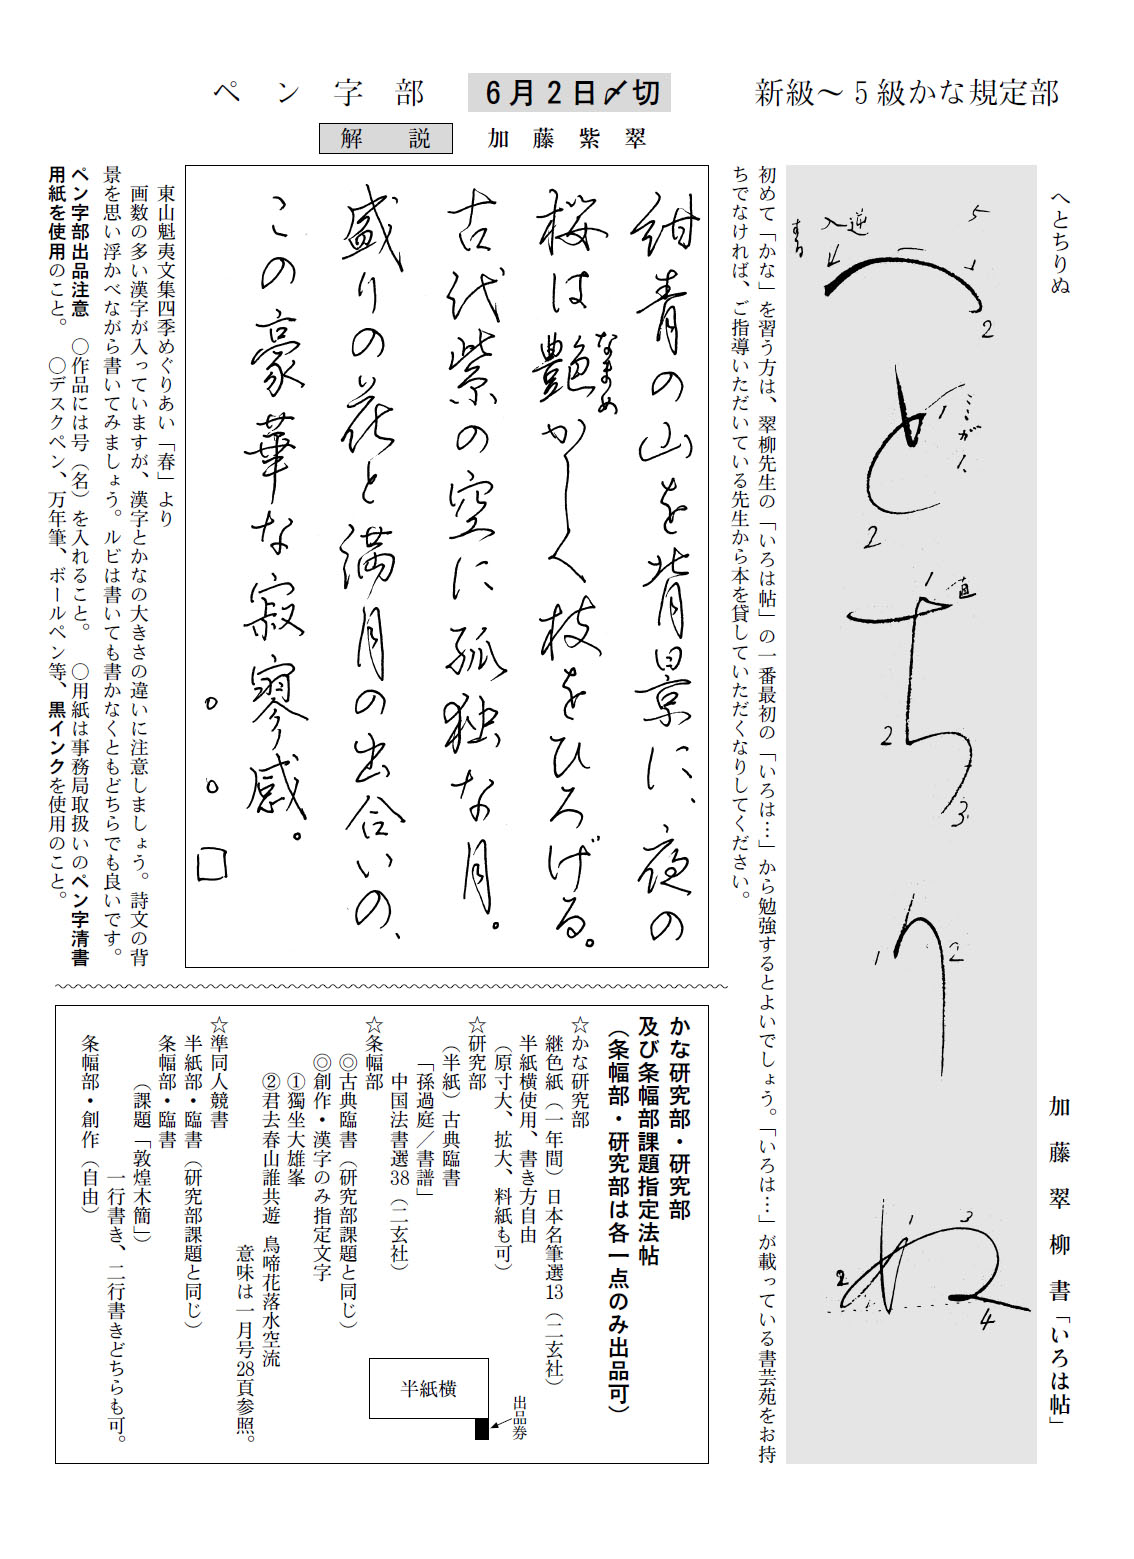 新級〜5級かな規定部
へとちりぬ
加藤翠柳書「いろは帖」
5
逆
入
1
2
1
2
1
直
2
3
1
2
1
3
2
4
初めて「かな」を習う方は、翠柳先生の「いろは帖」の一番最初の「いろは…」から勉強するとよいでしょう。「いろは…」が載っている書芸苑をお持
ちでなければ、ご指導いただいている先生から本を貸していただくなりしてください。
ペン字部
6月2日〆切
解説
加藤紫翠
紺青の山を背景に、夜の
桜は艶かしく枝をひろげる。
なまめ
古代紫の空に孤独な月。
盛りの花と満月の出合いの、
この豪華な寂寥感。
東山魁夷文集四季めぐりあい「春」より
画数の多い漢字が入っていますが、漢字とかなの大きさの違いに注意しましょう。詩文の背
景を思い浮かべながら書いてみましょう。ルビは書いても書かなくともどちらでも良いです。
ペン字部出品注意　○作品には号（名）を入れること。　○用紙は事務局取扱いのペン字清書
用紙を使用のこと。　○デスクペン、万年筆、ボールペン等、黒インクを使用のこと。
かな研究部・研究部
及び条幅部課題指定法帖
（条幅部・研究部は各一点のみ出品可）
☆かな研究部
継色紙（一年間）日本名筆選13（二玄社）
半紙横使用、書き方自由
（原寸大、拡大、料紙も可）
☆研究部
（半紙）古典臨書
「孫過庭／書譜」
中国法書選38（二玄社）
☆条幅部
◎古典臨書（研究部課題と同じ）
◎創作・漢字のみ指定文字
①獨坐大雄峯
②君去春山誰共遊　鳥啼花落水空流
意味は一月号28頁参照。
☆準同人競書
半紙部・臨書（研究部課題と同じ）
条幅部・臨書
（課題「敦煌木簡」）
一行書き、二行書きどちらも可。
条幅部・創作（自由）
半紙横
出品券